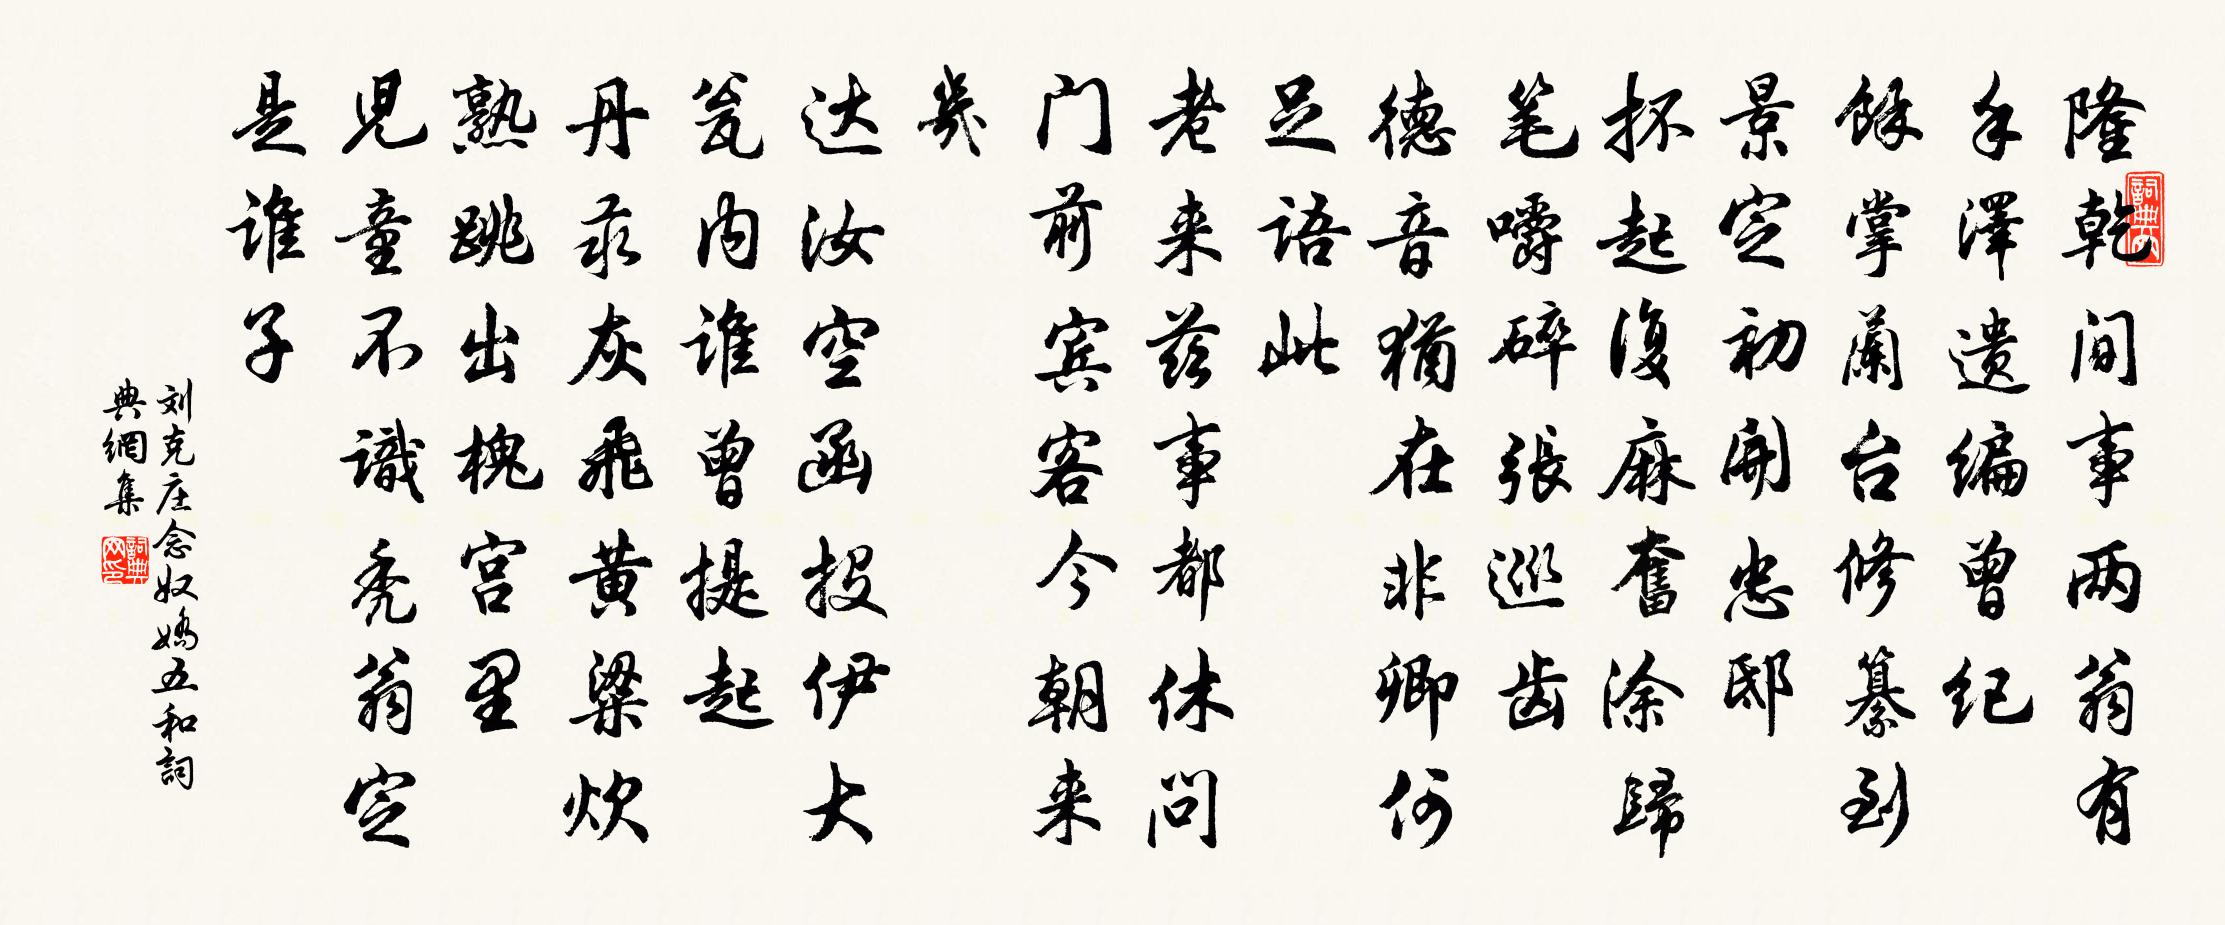 隆乾间事两翁有
手澤遗编曾纪
馀掌蘭台修纂到
景定初開忠邸
抔起復麻奮涂歸
笔嚼碎張巡齿
德音猶在非卿何
足语此
老来兹事都休问
门前宾客今朝来
幾
达汝空函投伊大
瓮内谁曾提起
丹汞灰飛黄粱炊
熟跳出槐宫里
児童不識秃翁定
是谁子
刘克庄念奴嬌五和詞
典網集